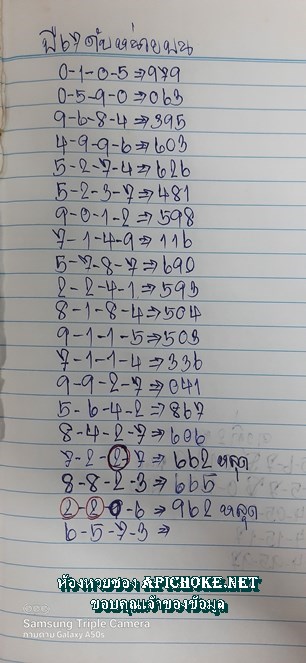 ปี 67 ดับหน่วยบน
0-1-0-5⇒979
0-5-9-0⇒063
9-6-8-4⇒395
4-9-9-6⇒603
5-2-7-4⇒626
5-2-3-7⇒481
9-0-1-2⇒598
7-1-4-9⇒116
5-7-8-7⇒690
2-2-4-1⇒593
8-1-8-4⇒504
9-1-1-5⇒503
7-1-1-4⇒336
9-9-2-7⇒041
5-6-4-2⇒867
8-4-2-7⇒606
7-2-2-7⇒662 หลุด
8-8-2-3⇒665
2-2-0-6⇒962 หลุด
6-5-7-3⇒
ห้องหวยซอง APICHOKE.NET
ขอบคุณเจ้าของข้อมูล
Samsung Triple Camera
ถ่ายด้วย Galaxy A50s